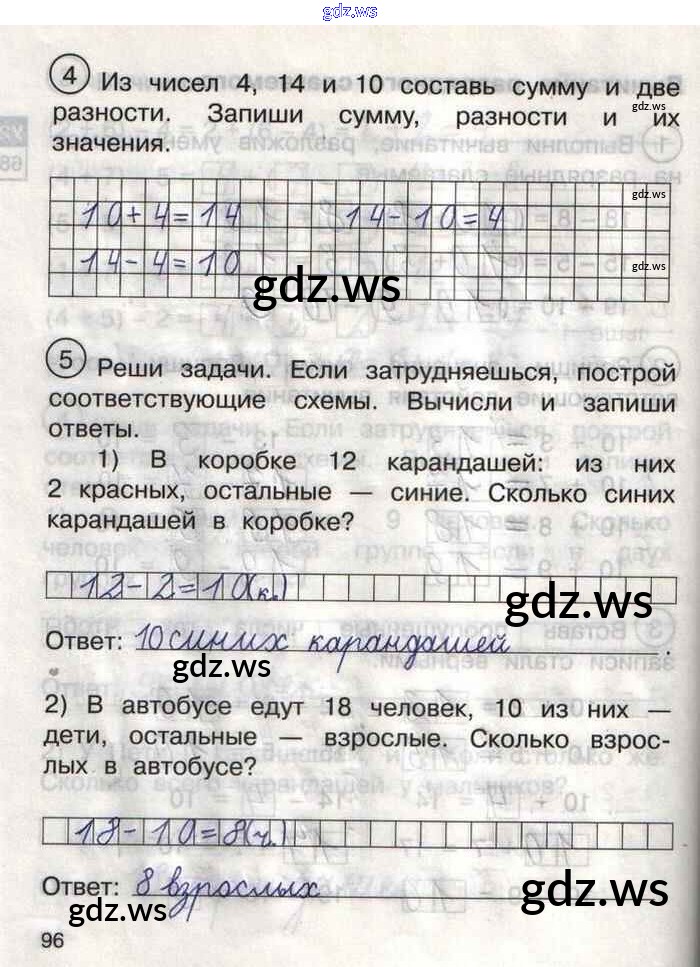 gdz.ws
4 Из чисел 4, 14 и 10 составь сумму и две
gdz.ws
разности. Запиши сумму, разности и их
значения.
gdz.ws
10+4=14 14-10=4
14-4=10
gdz.ws
gdz.ws
5 Реши задачи. Если затрудняешься, построй
соответствующие схемы. Вычисли и запиши
ответы.
1) В коробке 12 карандашей: из них
2 красных, остальные — синие. Сколько синих
карандашей в коробке?
12-2=10(к.)
gdz.ws
Ответ: 10 синих карандашей.
gdz.ws
2) В автобусе едут 18 человек, 10 из них —
дети, остальные — взрослые. Сколько взрос-
лых в автобусе?
18-10=8(ч.)
Ответ: 8 взрослых
gdz.ws
gdz.ws
96